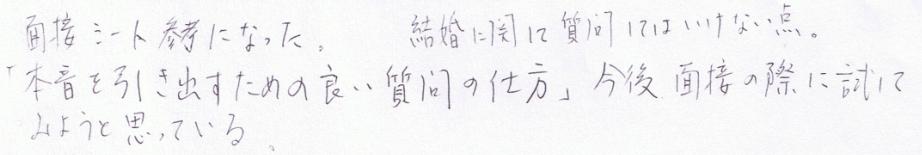 面接シート参考になった。　結婚に関して質問してはいけない点。
「本音を引き出すための良い質問の仕方」今後面接の際に試して
みようと思っている。